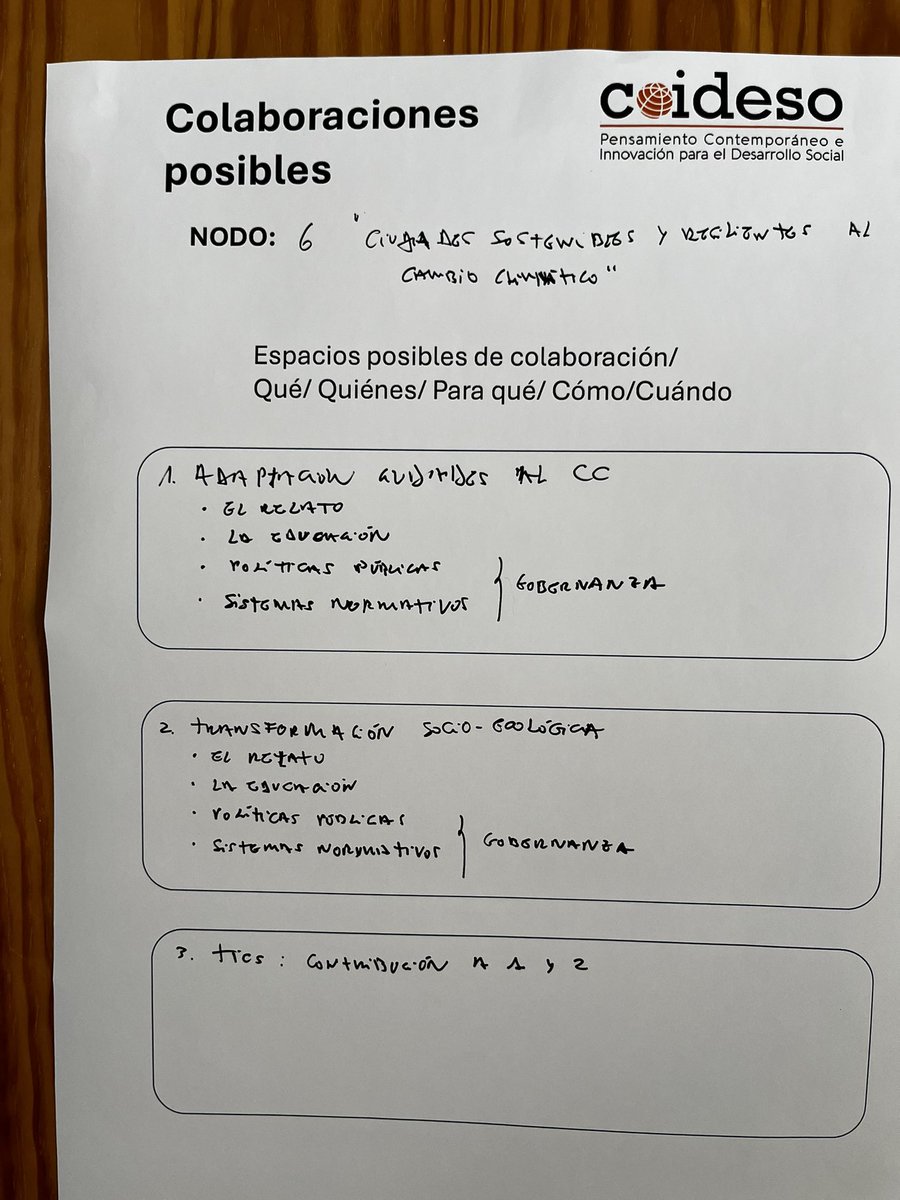 Colaboraciones
posibles
coideso
Pensamiento Contemporáneo e
Innovación para el Desarrollo Social
NODO: 6 "CIUDADES SOSTENIBLES Y RESILIENTES AL
CAMBIO CLIMÁTICO"
Espacios posibles de colaboración/
Qué/ Quiénes/ Para qué/ Cómo/Cuándo
1. ADAPTACION CIUDADES AL CC
· EL RELATO
· LA EDUCACIÓN
· POLÍTICAS PÚBLICAS
· SISTEMAS NORMATIVOS } GOBERNANZA
2. TRANSFORMACIÓN SOCIO-ECOLÓGICA
· EL RELATO
· LA EDUCACIÓN
· POLÍTICAS PUBLICAS
· SISTEMAS NORMATIVOS } GOBERNANZA
3. TICS: CONTRIBUCIÓN A 1 Y 2